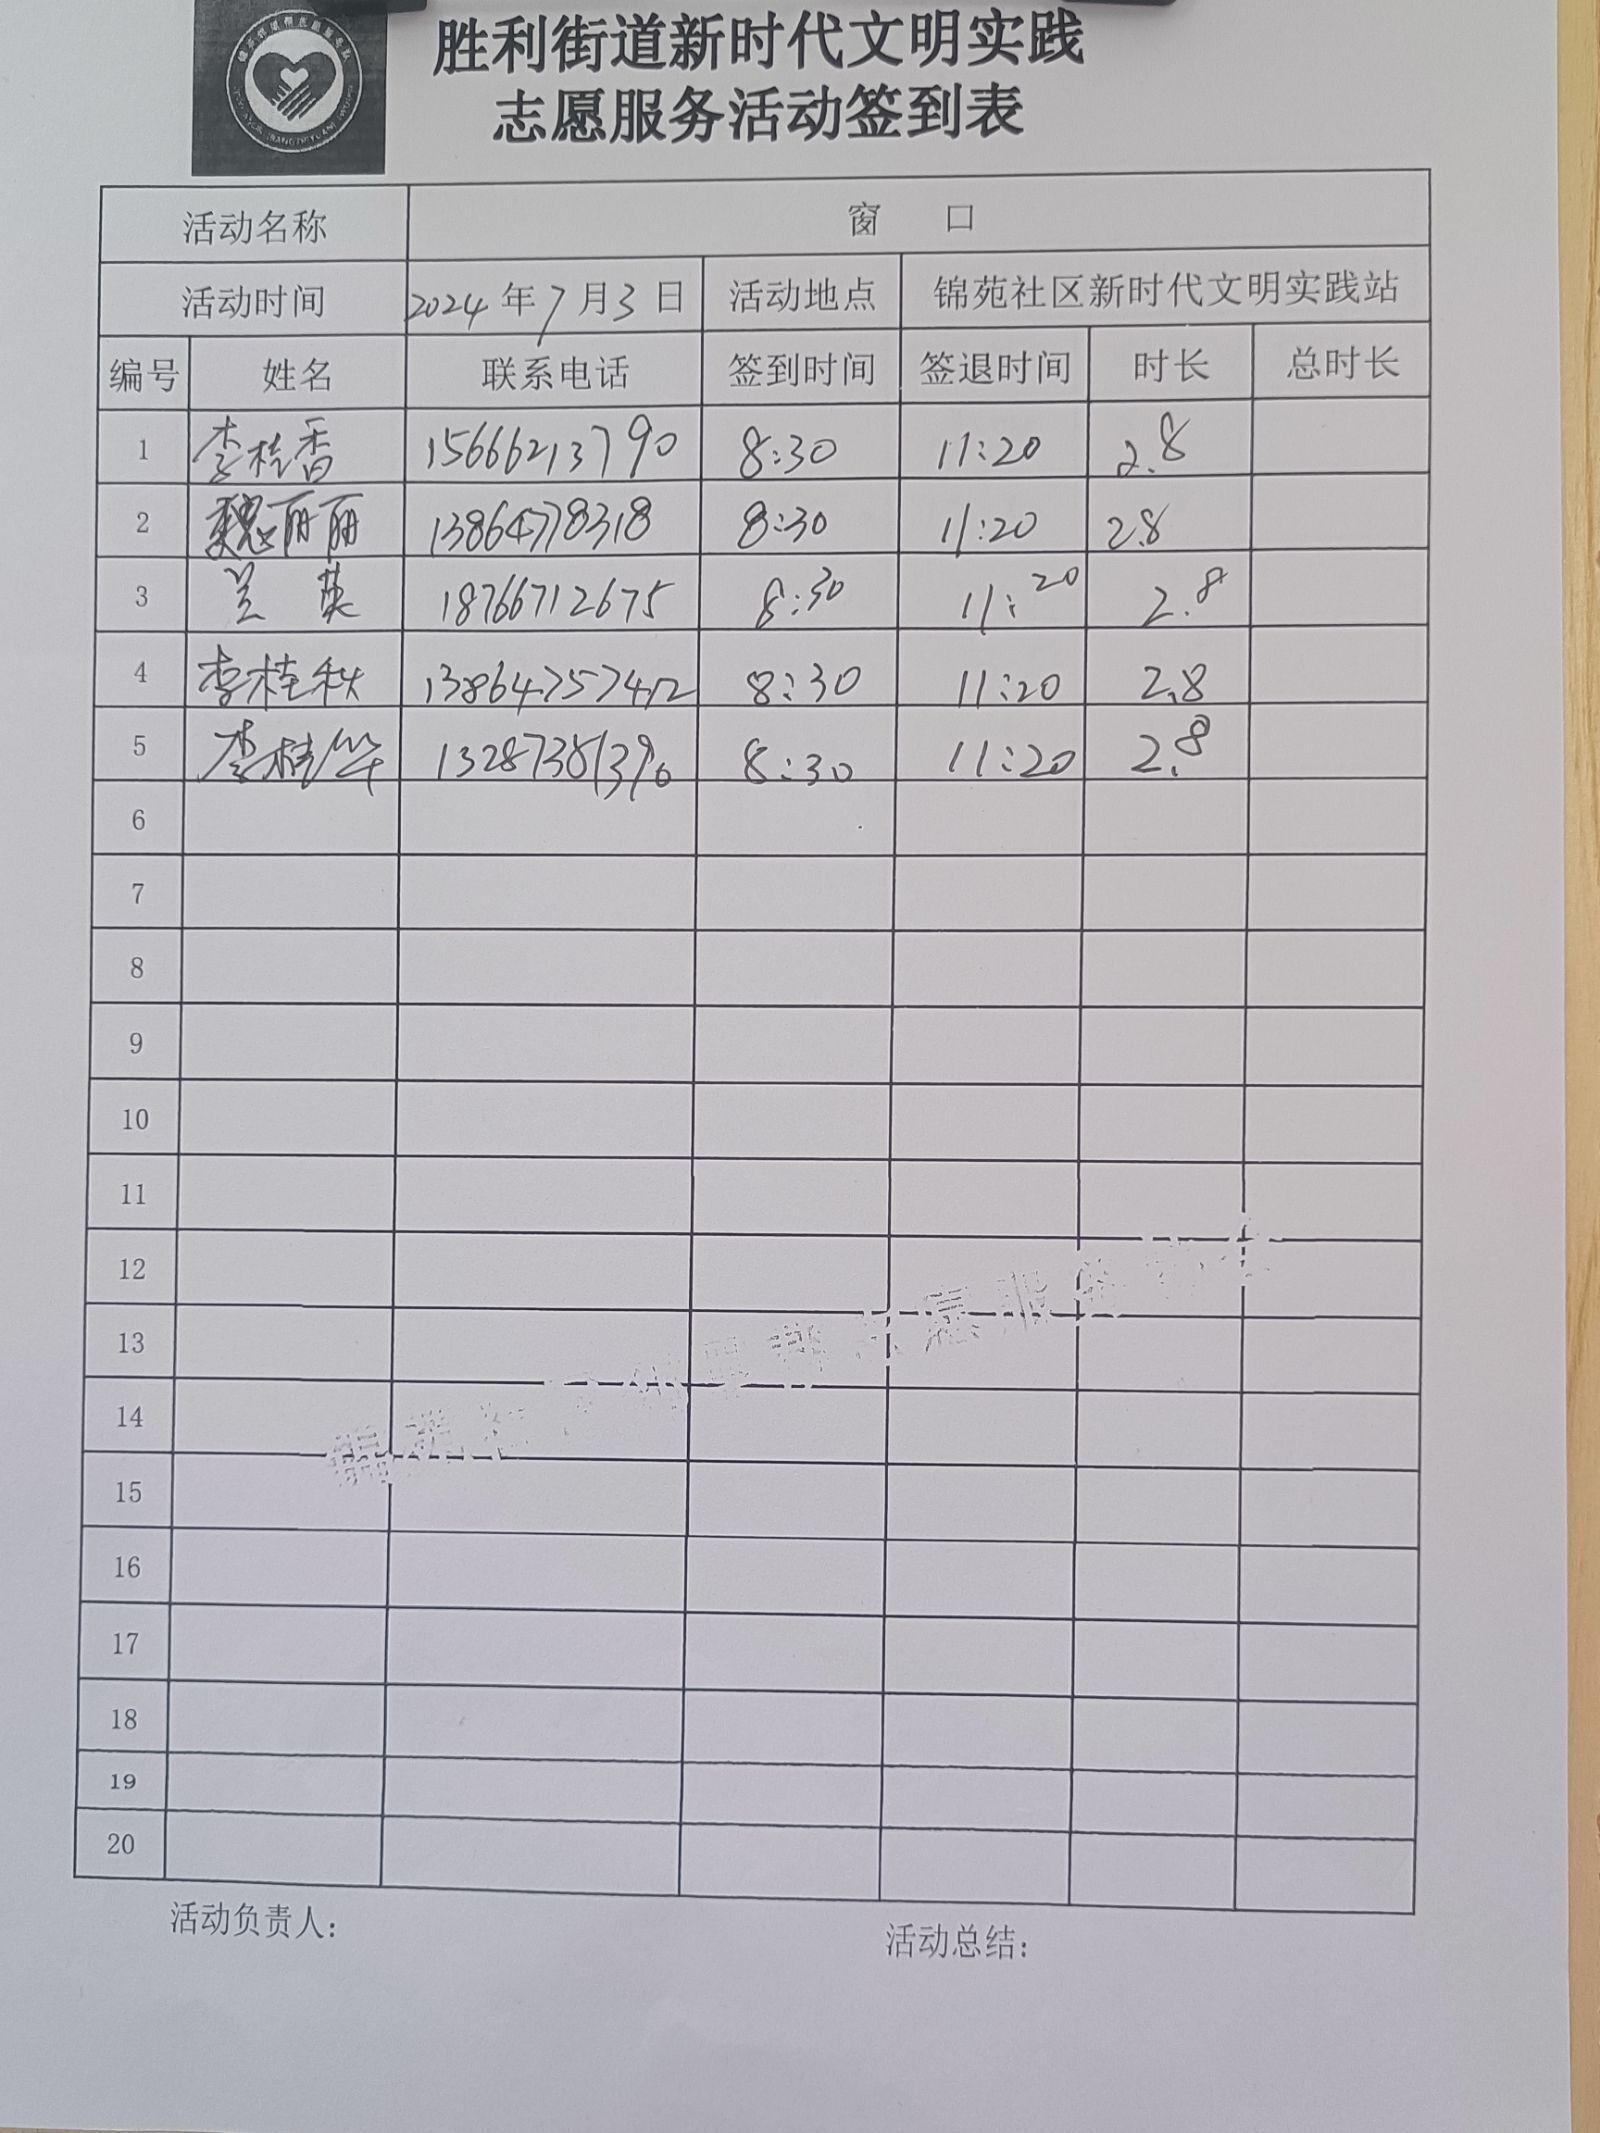 胜利街道新时代文明实践
志愿服务活动签到表
活动名称 窗 口
活动时间 2024年7月3日 活动地点 锦苑社区新时代文明实践站
编号 姓名 联系电话 签到时间 签退时间 时长 总时长
1 李桂香 15666213790 8:30 11:20 2.8
2 魏丽丽 13864778318 8:30 11:20 2.8
3 兰英 18766712675 8:30 11:20 2.8
4 李桂秋 13864757412 8:30 11:20 2.8
5 李桂华 13287381390 8:30 11:20 2.8
6
7
8
9
10
11
12
13
14
15
16
17
18
19
20
活动负责人: 活动总结: